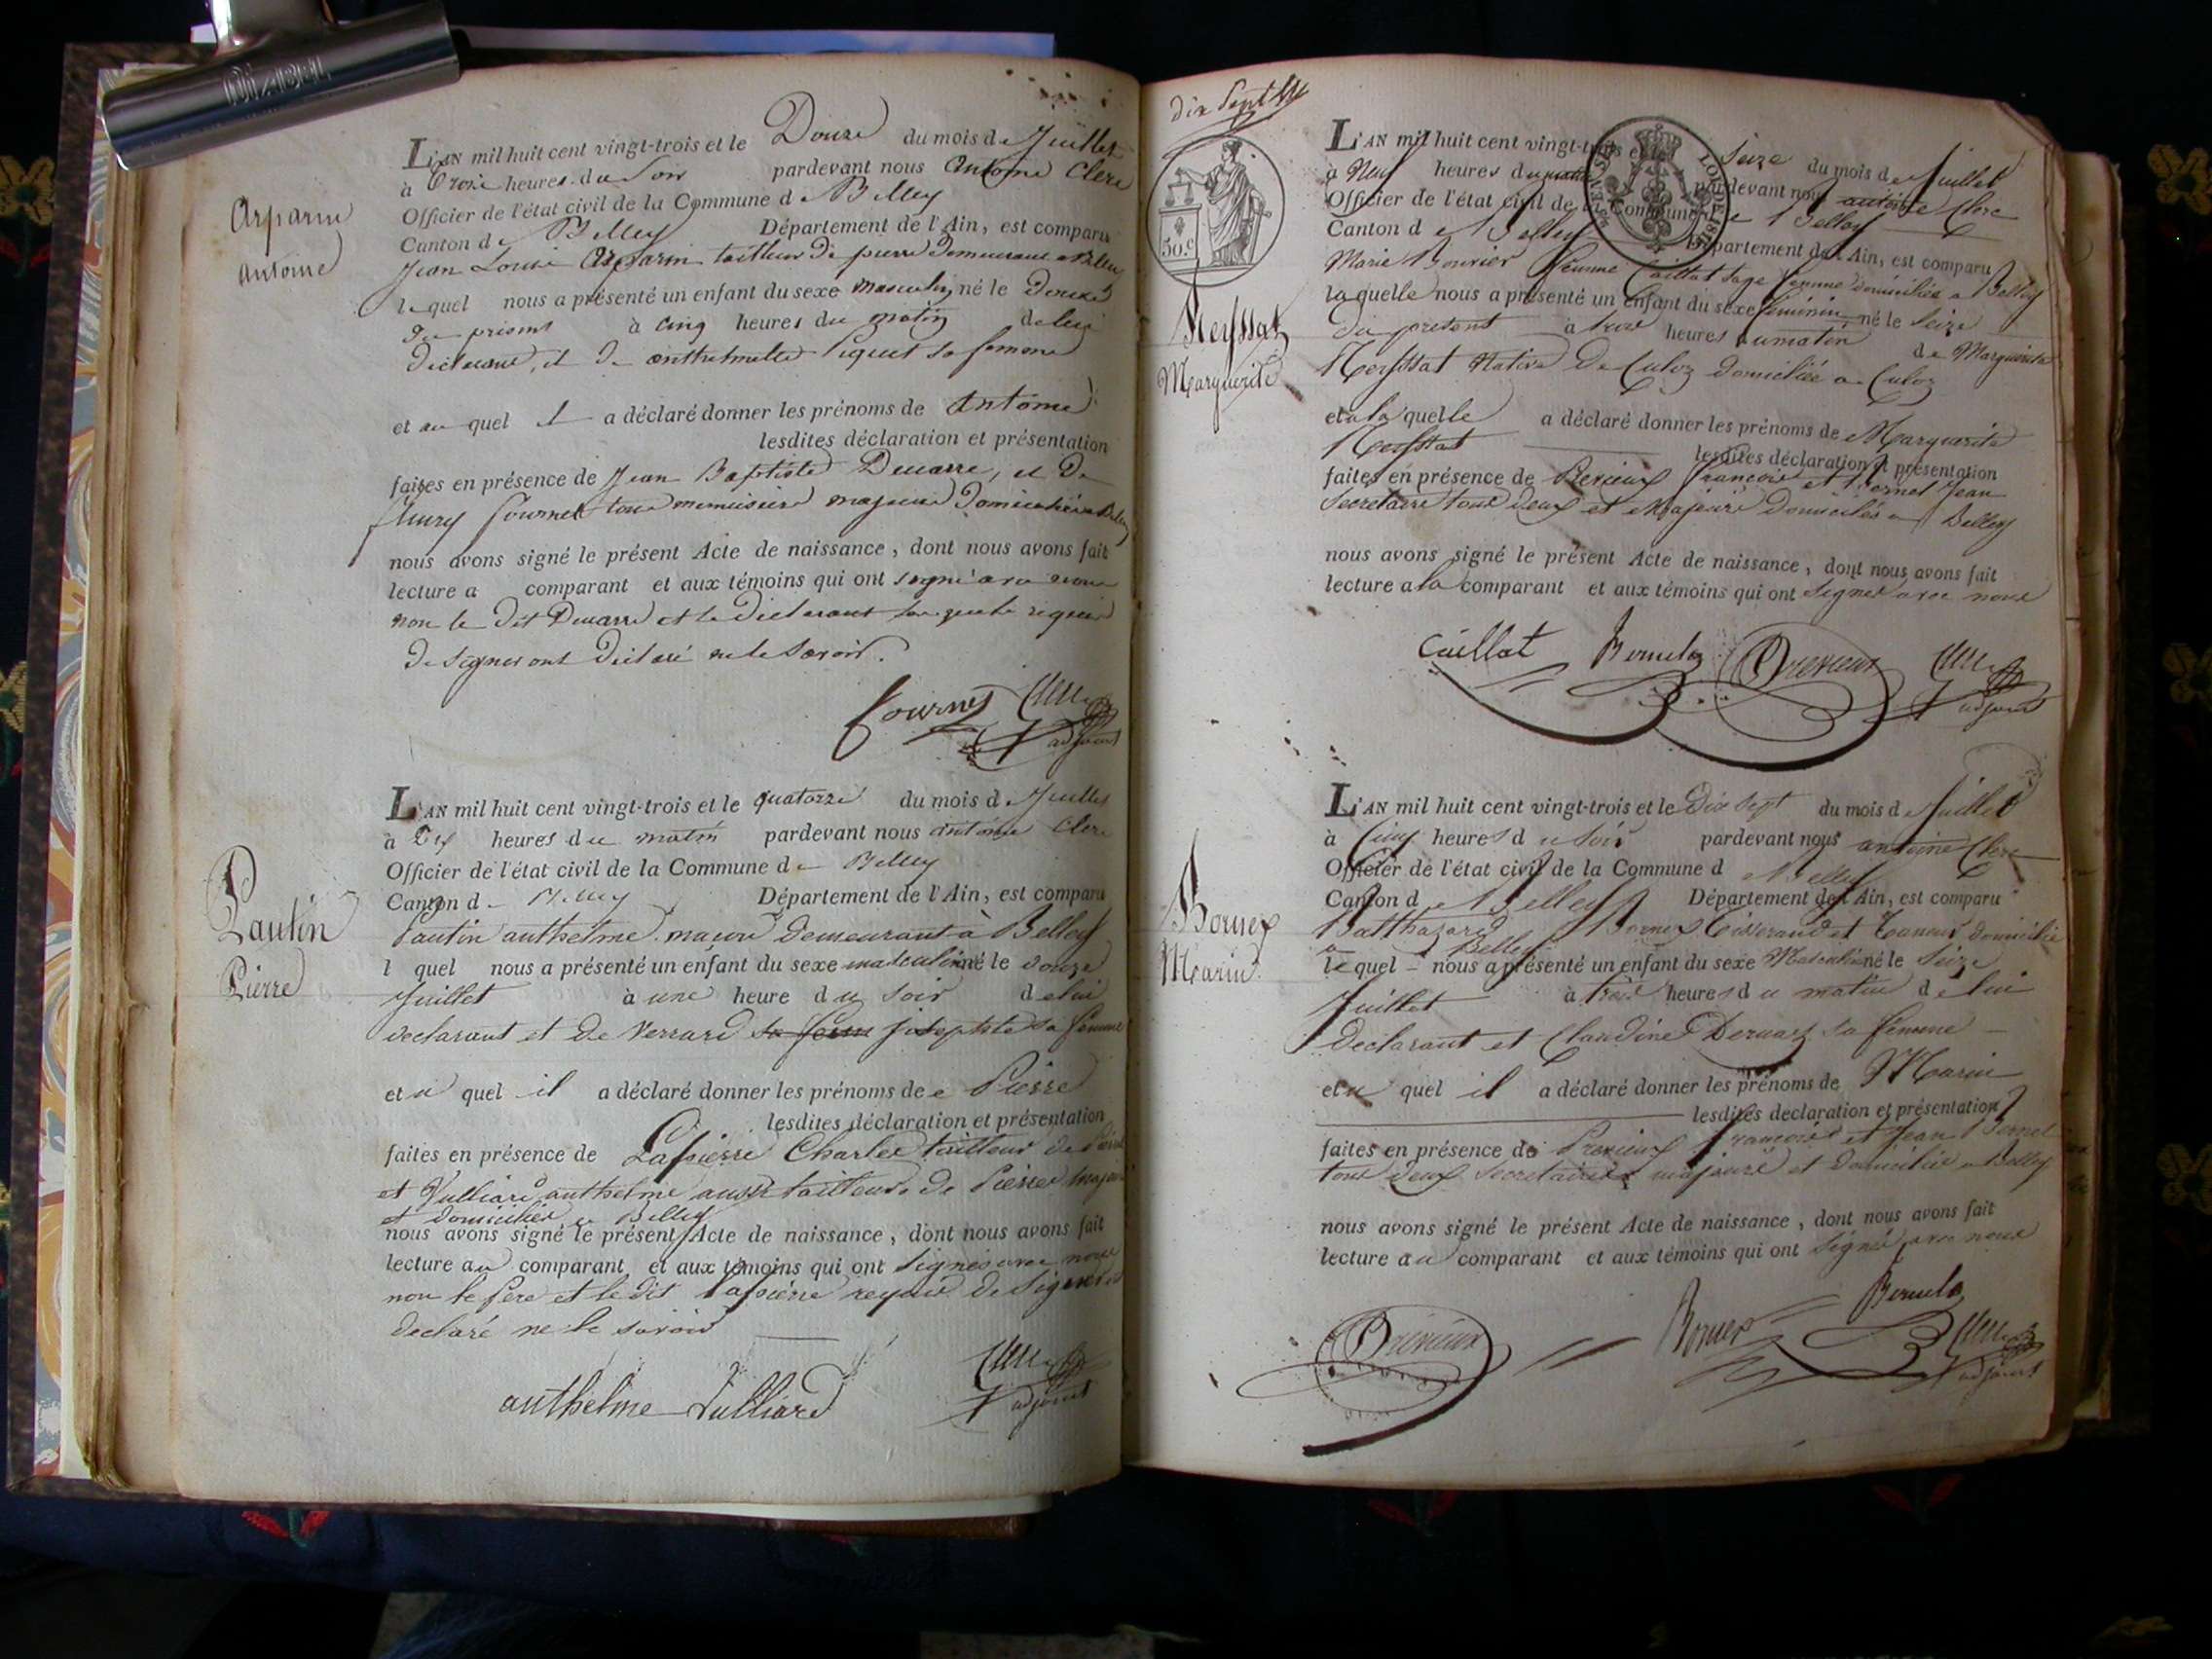 Arparin
antoine
L'AN mil huit cent vingt-trois et le Douze du mois de Juillet
à trois heures du Soir pardevant nous Antoine Clerc
Officier de l'état civil de la Commune de Belley
Canton de Belley Département de l'Ain, est comparu
Jean Louis Arparin tailleur de pierre demeurant a Belley
lequel nous a présenté un enfant du sexe masculin né le Douze
du présent à cinq heures du matin de lui
déclarant, et de anthelmette Piquet sa femme
et au quel il a déclaré donner les prénoms de Antoine
lesdites déclaration et présentation
faites en présence de Jean Baptiste et de
fleury fournet tous menuisiers majeurs Domiciliés a Belley
nous avons signé le présent Acte de naissance, dont nous avons fait
lecture a comparant et aux témoins qui ont signé avec nous
non le dit et le déclarant lesquels requis
de signer ont déclaré ne le savoir.
fournet Clerc
adjoint
Pautin
Pierre
L'AN mil huit cent vingt-trois et le quatorze du mois de Juillet
à Dix heures du matin pardevant nous antoine Clerc
Officier de l'état civil de la Commune de Belley
Canton de Belley Département de l'Ain, est comparu
Pautin anthelme maçon demeurant à Belley
l quel nous a présenté un enfant du sexe masculin né le douze
Juillet à une heure du soir de lui
declarant et de Verrard sa femme josephte sa femme
et a quel il a déclaré donner les prénoms de Pierre
lesdites déclaration et présentation
faites en présence de Lapierre Charles tailleur de Pierre
et Vulliard anthelme aussi tailleur de Pierre majeurs
et domiciliés a Belley
nous avons signé le présent Acte de naissance, dont nous avons fait
lecture au comparant et aux témoins qui ont signés avec nous
non le père et le dit Lapierre requis de signer
declaré ne le savoir
anthelme Vulliard Clerc
adjoint
dix Sept
50.c
LOI DE 1816
Neyssat
Marguerite
L'AN mil huit cent vingt-trois et le Seize du mois de Juillet
à Neuf heures du matin pardevant nous antoine Clerc
Officier de l'état civil de la Commune de Belley
Canton de Belley Département de l'Ain, est comparu
Marie Bouvier femme Caillat sage femme domiciliée a Belley
laquelle nous a présenté un enfant du sexe féminin né le Seize
du présent à trois heures du matin de Marguerite
Neyssat Native de Culoz domiciliée a Culoz
et a la quelle a déclaré donner les prénoms de Marguerite
Neyssat lesdites déclaration et présentation
faites en présence de Prerieux françois et Bernel Jean
Secretaire tous deux et Majeurs Domiciliés a Belley
nous avons signé le présent Acte de naissance, dont nous avons fait
lecture a la comparant et aux témoins qui ont signés avec nous
Caillat Prerieux Clerc
adjoint
Bornex
Marin
L'AN mil huit cent vingt-trois et le Dix sept du mois de Juillet
à Cinq heures du soir pardevant nous antoine Clerc
Officier de l'état civil de la Commune d Belley
Canton de Belley Département de l'Ain, est comparu
Balthazard Bornex Tisserand et Taneur domicilié
a Belley
lequel nous a présenté un enfant du sexe Masculin né le Seize
Juillet à trois heures du matin de lui
declarant et Claudine Dervaz sa femme
et a quel il a déclaré donner les prénoms de Marin
lesdites declaration et présentation
faites en présence de Prerieux françois et Jean Bernel
tous deux Secretaires majeurs et domiciliés a Belley
nous avons signé le présent Acte de naissance, dont nous avons fait
lecture au comparant et aux témoins qui ont signé avec nous
Prerieux Bornex Clerc
adjoint